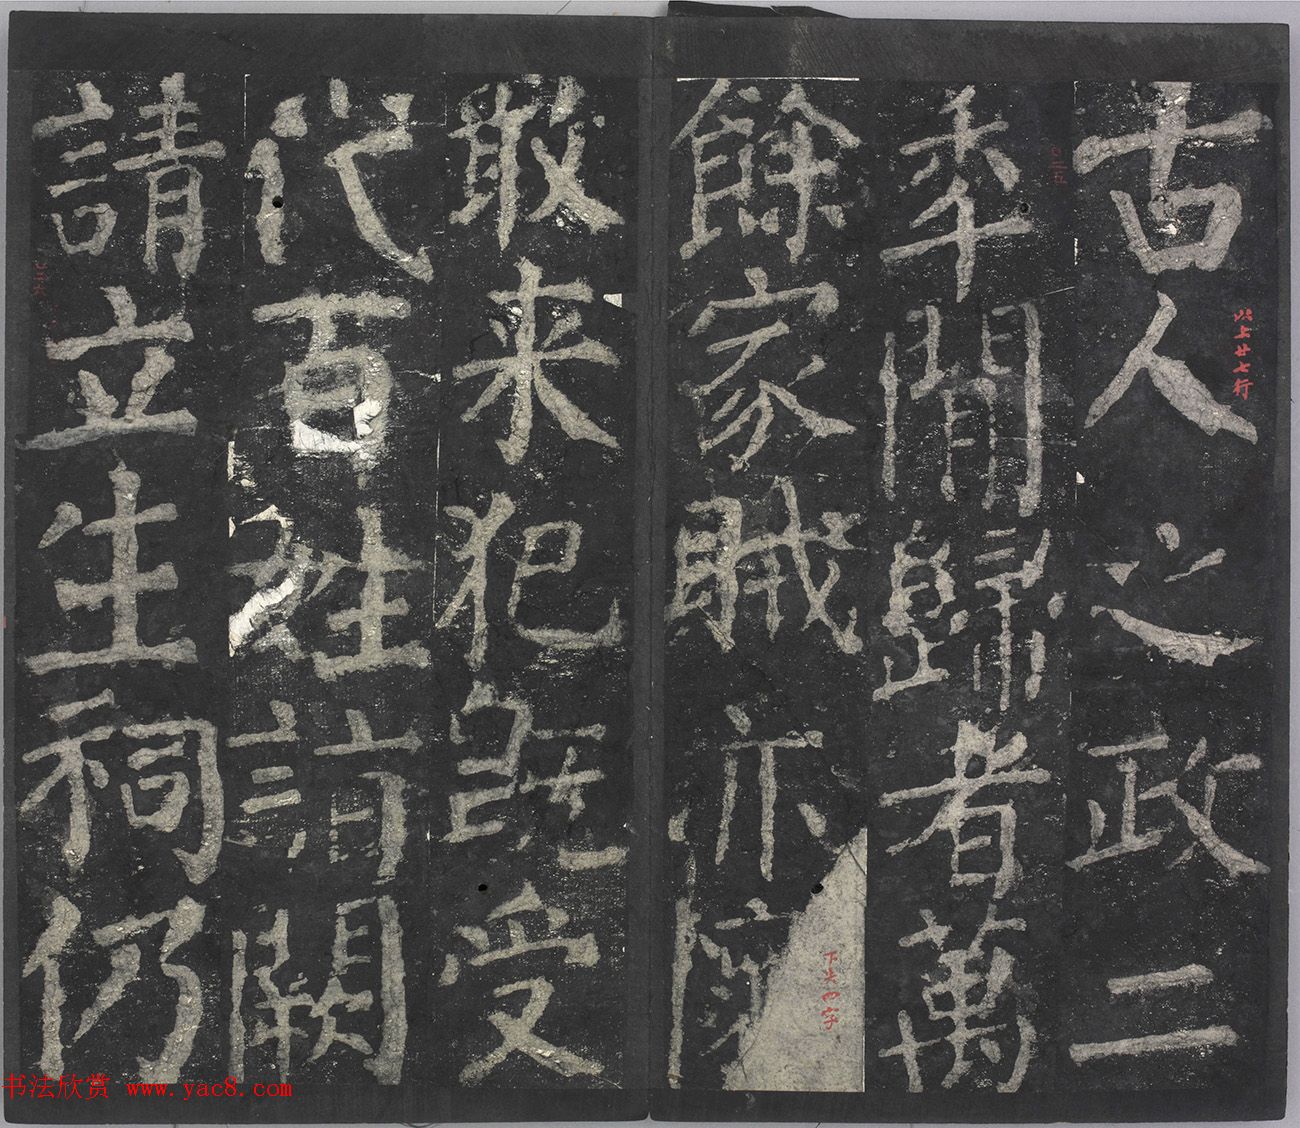 古人之政二
以上廿七行
秊閒歸者萬
餘家賊亦
敢来犯既受
代百姓詣闕
請立生祠仍
书法欣赏 www.yac8.com